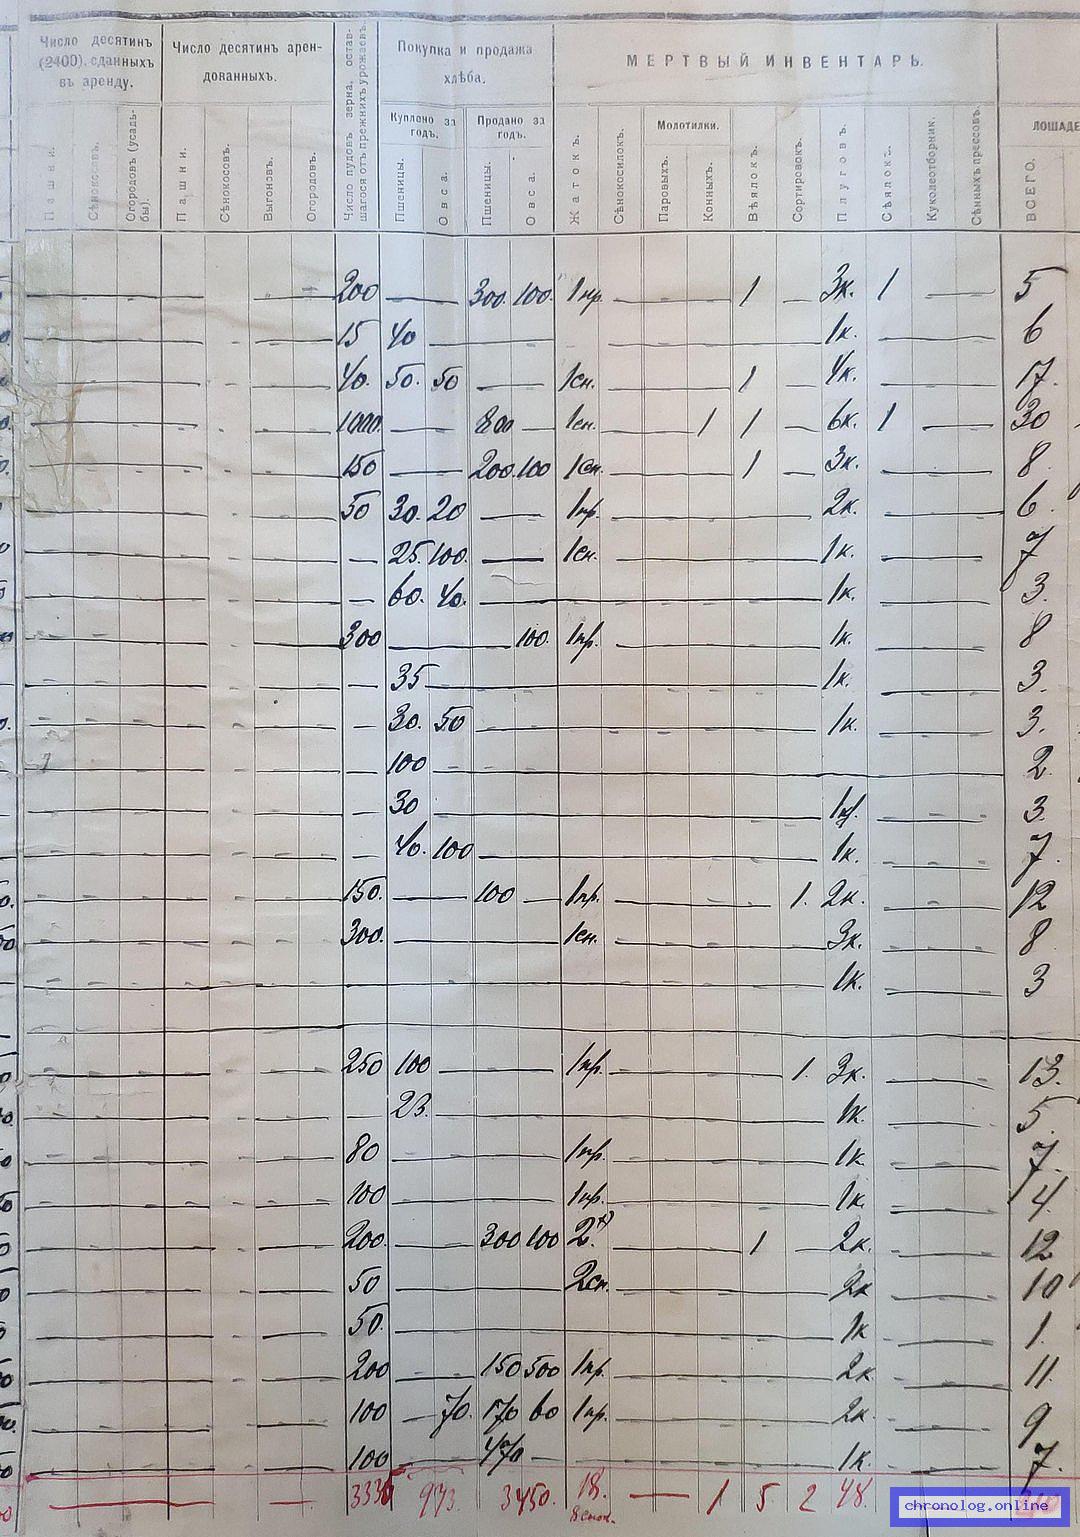 Число десятинъ (2400), сданныхъ въ аренду.
Число десятинъ арендованныхъ.
Число пудовъ зерна, оставшагося отъ прежнихъ урожаевъ.
Покупка и продажа хлѣба.
МЕРТВЫЙ ИНВЕНТАРЬ.
Куплено за годъ.
Продано за годъ.
Молотилки.
ЛОШАДЕ
Пашни.
Сѣнокосовъ.
Огородовъ (усадьбы).
Пашни.
Сѣнокосовъ.
Выгоновъ.
Огородовъ.
Пшеницы.
Овса.
Пшеницы.
Овса.
Жатокъ.
Сѣнокосилокъ.
Паровыхъ.
Конныхъ.
Вѣялокъ.
Сортировокъ.
Плуговъ.
Сѣялокъ.
Куколеотборник.
Сѣнныхъ прессовъ.
ВСЕГО.
200 — 300. 100. 1 пр. — 1 — 3к. 1 — 5
15 40 — 1к. — 6
40. 50. 50 — 1сн. — 1 — 4к. — 17.
1000. — 800 — 1сн. — 1 1 — 6к. 1 — 30
150 — 200. 100 1сн. — 1 — 3к. — 8
50 30. 20 — 1пр. — 2к. — 6
— 25. 100. — 1сн. — 1к. — 7
— 60. 40. — 1к. — 3.
300 — 100. 1пр. — 1к. — 8
— 35 — 1к. — 3.
— 30. 50 — 1к. — 3.
— 100 — 2
— 30 — 3.
— 40. 100 — 1к. — 7.
150. — 100 — 1пр. — 1. 2к. — 12
300. — 1сн. — 3к. — 8
— 1к. — 3
250 100 — 1пр. — 1. 3к. — 13.
— 23. — 1к. — 5.
80 — 1пр. — 1к. — 7.
100 — 1пр. — 1к. — 4.
200. — 300 100 2.*) — 1 — 2к. — 12
50 — 2сн. — 2к — 10
50. — 1к — 1.
200 — 150 500 1пр. — 2к — 11.
100 — 70. 170 60 1пр. — 2к. — 9
100 — 470 — 1к. — 7.
3335 973. 3450. 18. — 1 5. 2 48.
chronolog.online